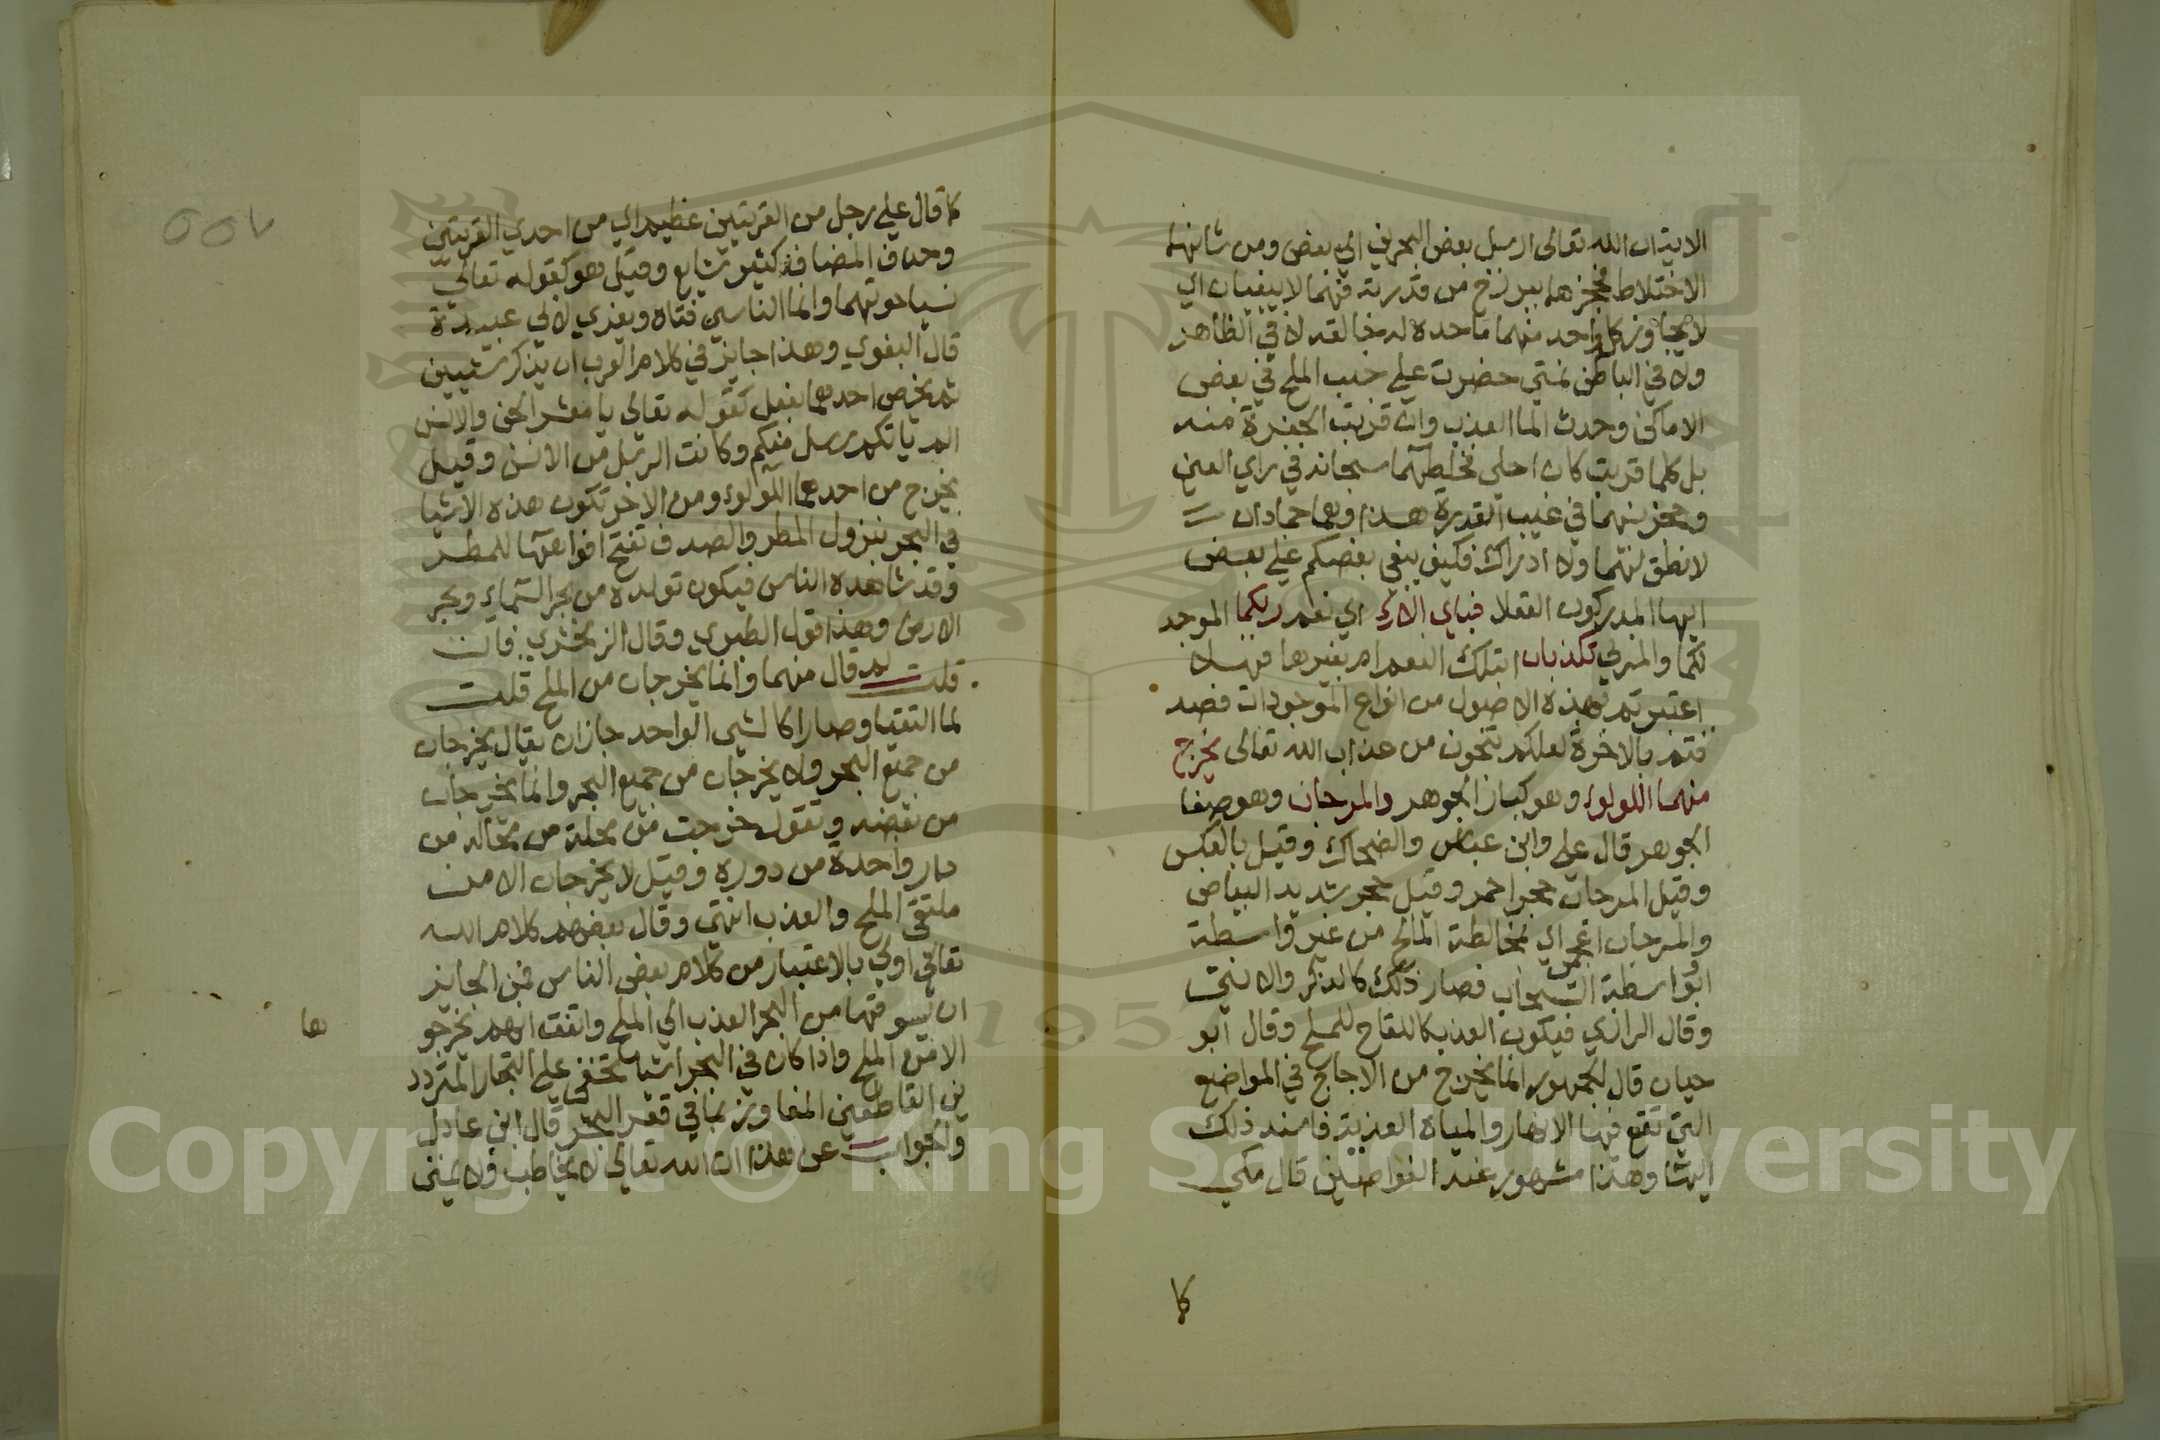 الاية ان الله تعالى ارسل بعض البحرين الي بعض ومن شانهما
الاختلاط فحجزهما ببرزخ من قدرته فهما لا يبغيان اي
لا يجاوز كل واحد منهما ما حده له خالقه لا في الظاهر
ولا في الباطن فمتي حفرت علي جنب الملح في بعض
الاماكن وجدت الما العذب وان قربت الحفرة منه
بل كلما قربت كان احلي فخلطهما سبحانه في راي العين
وحجز بينهما في غيب القدرة هذا وهما جمادان
لا نطق لهما ولا ادراك فكيف يبغي بعضكم علي بعض
ايها المدركون العقلا فباي الاء اي نعم ربكما الموجد
لكما والمربي تكذبان ابتلك النعم ام بغيرها فهلا
اعتبرتم بهذه الاصول من انواع الموجودات فصد
قتم بالاخرة لعلكم تنجون من عذاب الله تعالى يخرج
منهما اللولوء وهو كبار الجوهر والمرجان وهو صغا
الجوهر قال علي وابن عباس والضحاك وقيل بالعكس
وقيل المرجان حجر احمر وقيل حجر شديد البياض
والمرجان اعجمي اي بمخالطة المالح من غير واسطة
او بواسطة السحاب فصار ذلك كالذكر والانثي
وقال الرازي فيكون العذب كاللقاح للملح وقال ابو
حيان قال الجمهور انما يخرج من الاجاج في المواضع
التي تقع فيها الانهار والمياه العذبة فاسند ذلك
اليهما وهذا مشهور عند الغواصين قال مكي
كما
كما قال علي رجل من القريتين عظيم اي من احدي القريتين
وحذف المضاف كثير شايع وقيل هو كقوله تعالي
نسيا حوتهما وانما الناسي فتاه ويعزي لابي عبيدة
قال البغوي وهذا جايز في كلام العرب ان يذكر شيين
ثم يخص احدهما بفعل كقوله تعالي يا معشر الجن والانس
الم ياتكم رسل منكم وكانت الرسل من الانس وقيل
يخرج من احدهما اللولوء ومن الاخر تكون هذه الاشيا
في البحر بنزول المطر والصدف تفتح افواهها للمطر
وقد شاهده الناس فيكون تولده من بحر السماء وبحر
الارض وهذا قول الطبري وقال الزمخشري فان
قلت لم قال منهما وانما يخرجان من الملح قلت
لما التقيا وصارا كالشيى الواحد جاز ان يقال يخرجان
من جميع البحر ولا يخرجان من جميع البحر وانما يخرجان
من بعضه وتقول خرجت من محلة من محاله من
دار واحدة من دوره وقيل لا يخرجان الا من
ملتقي الملح والعذب انتهي وقال بعضهم كلام الله
تعالي اولي بالاعتبار من كلام بعض الناس فمن الجايز
ان يسوقهما من البحر العذب الي الملح واتفق انهم يخرجو
ها
الا من الملح واذا كان في البحر اشيا تخفي علي التجار المتردد
ين القاطعين المفاوز فما في قعر البحر قال ابن عادل
والجواب عن هذا ان الله تعالي لا يخاطب ولا يمتن
١٩٥٧
1957
Copyright © King Saud University